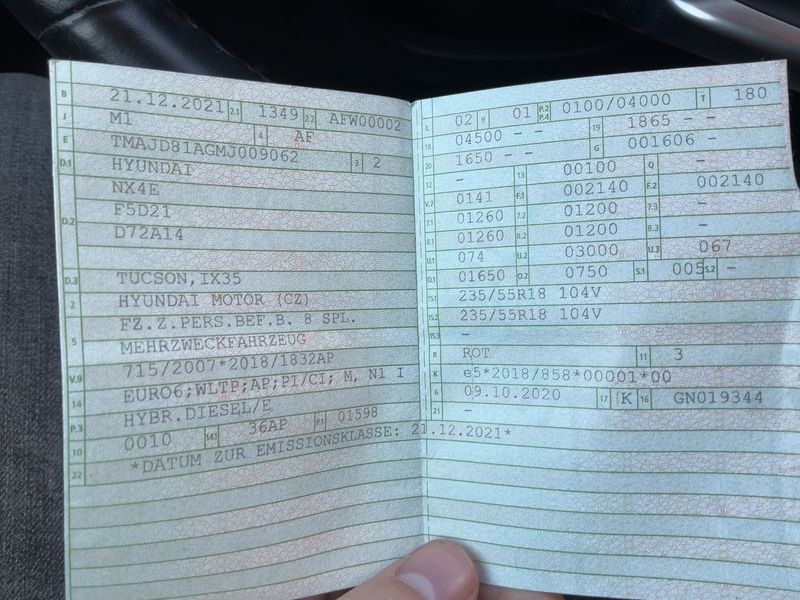 B 21.12.2021 2.1 1349 2.2 AFW00002
J M1 4 AF
E TMAJD81AGMJ009062 3 2
D.1 HYUNDAI
NX4E
D.2 F5D21
D72A14
D.3 TUCSON,IX35
2 HYUNDAI MOTOR (CZ)
FZ.Z.PERS.BEF.B. 8 SPL.
5 MEHRZWECKFAHRZEUG
V.9 715/2007*2018/1832AP
14 EURO6;WLTP;AP;PI/CI; M, N1 I
P.3 HYBR.DIESEL/E
10 0010 14.1 36AP P.1 01598
22 *DATUM ZUR EMISSIONSKLASSE: 21.12.2021*
L 02 9 01 P.2 P.4 0100/04000 T 180
18 04500 - - 19 1865 - -
20 1650 - - G 001606 - -
12 - 13 00100 Q -
V.7 0141 F.1 002140 F.2 002140
7.1 01260 7.2 01200 7.3 -
8.1 01260 8.2 01200 8.3 -
U.1 074 U.2 03000 U.3 067
O.1 01650 O.2 0750 S.1 005 S.2 -
15.1 235/55R18 104V
15.2 235/55R18 104V
15.3 -
R ROT 11 3
K e5*2018/858*00001*00
6 09.10.2020 17 K 16 GN019344
21 -